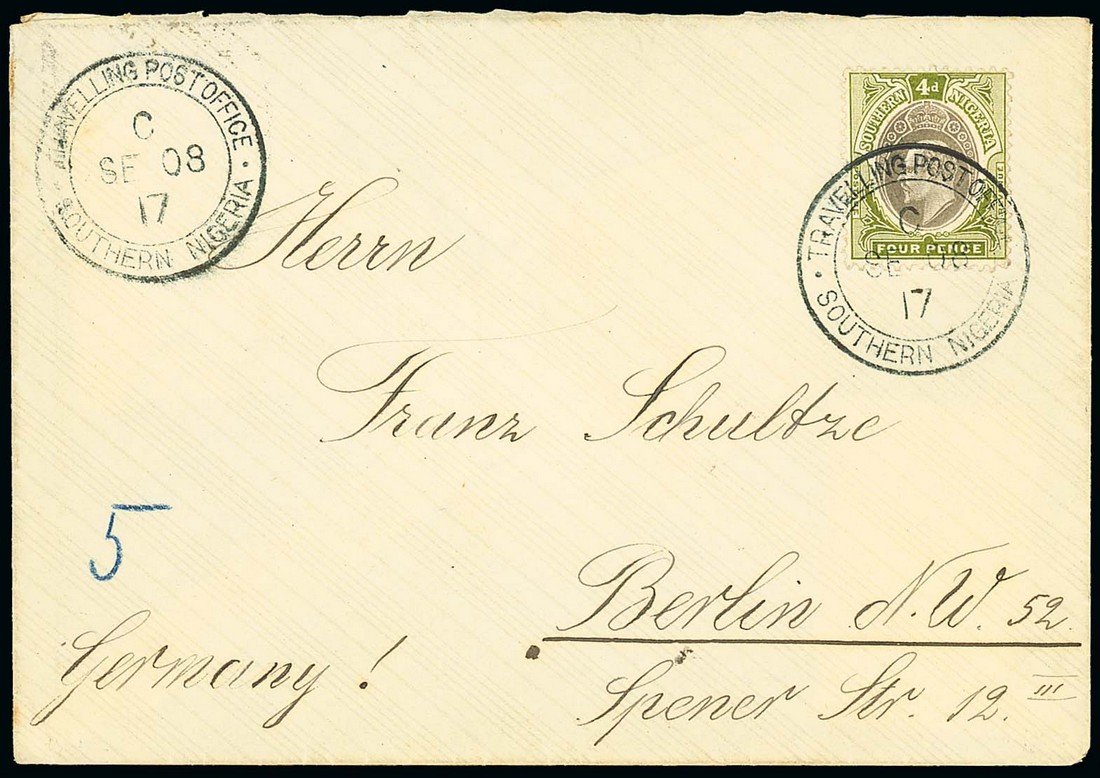 TRAVELLING POST OFFICE
C
SE 08
17
SOUTHERN NIGERIA
4d
SOUTHERN NIGERIA
POSTAGE
FOUR PENCE
TRAVELLING POST OFF
C
SE 08
17
SOUTHERN NIGERIA
Herrn
Franz Schultze
5
Berlin N.W. 52.
Germany!
Spener Str. 12. III